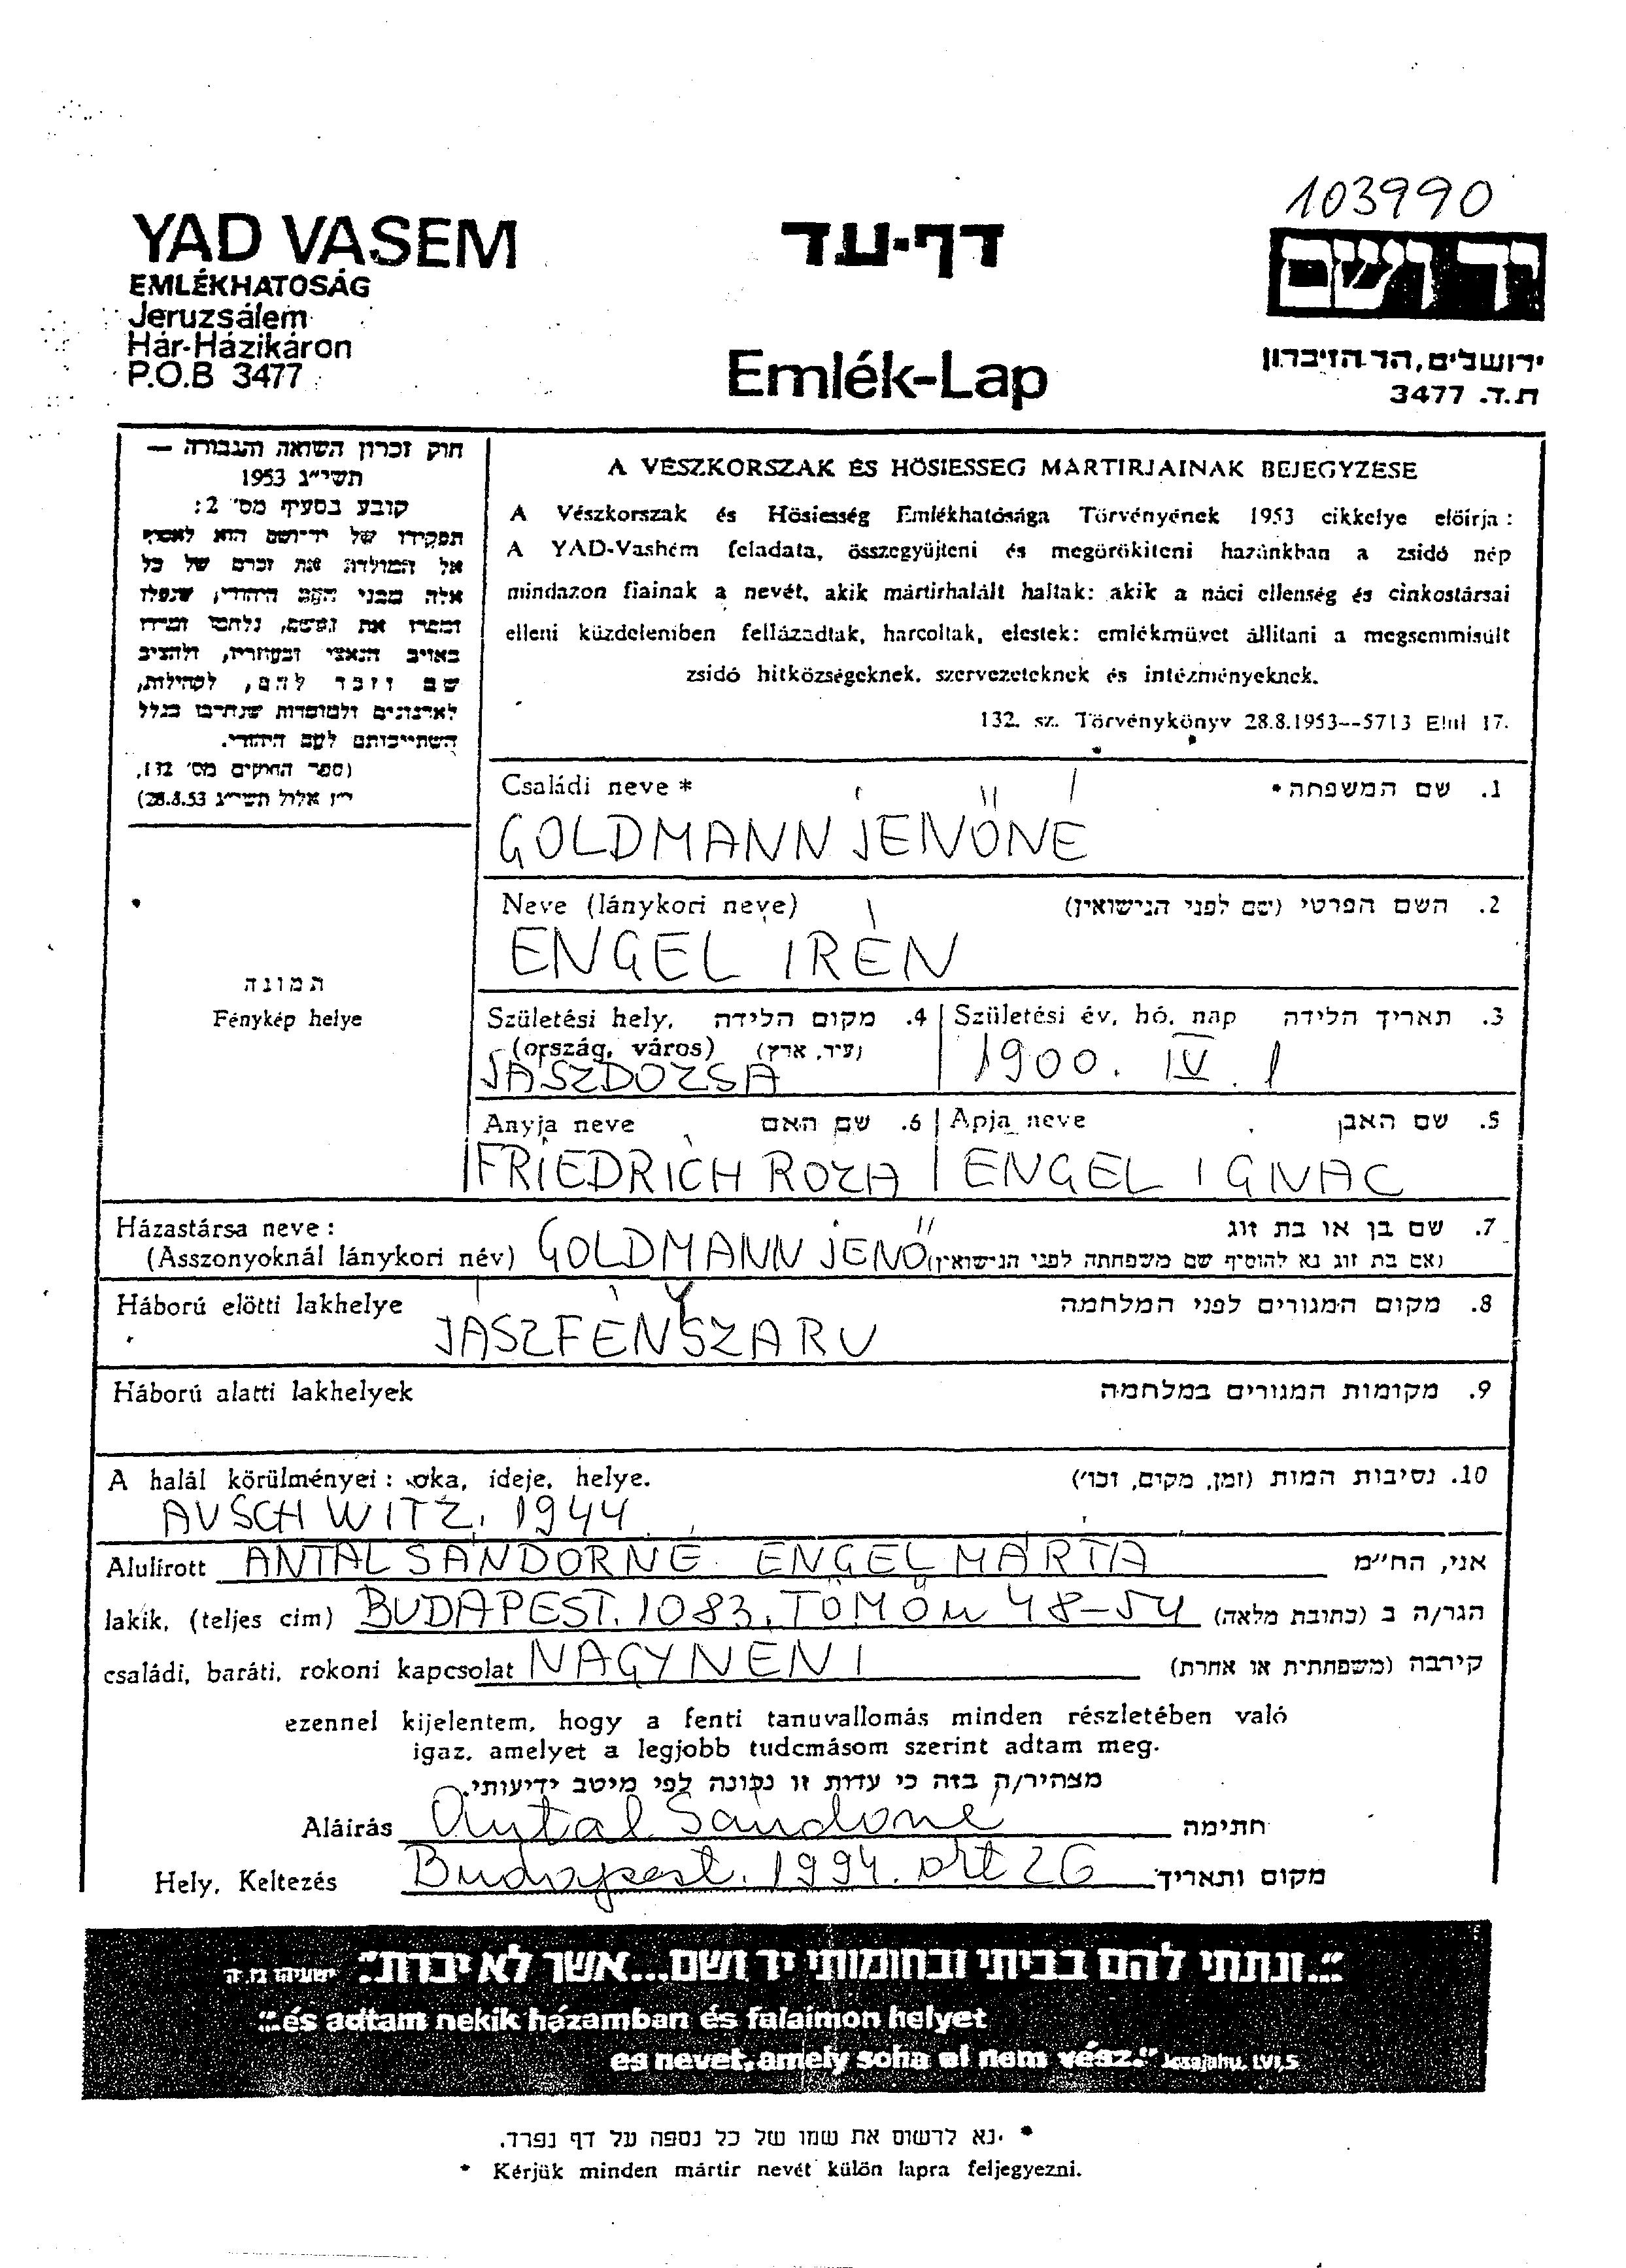 103990
YAD VASEM
EMLÉKHATOSÁG
Jeruzsálem
Hár-Házikáron
P.O.B 3477
דף-עד
Emlék-Lap
יד ושם
ירושלים, הר הזיכרון
ת.ד. 3477
חוק זכרון השואה והגבורה —
תשי"ג 1953
קובע בסעיף מס' 2:
תפקידו של יד-ושם הוא לאסוף
אל המולדת את זכרם של כל
אלה מבני העם היהודי, שנפלו
ומסרו את נפשם, נלחמו ומרדו
באויב הנאצי ובעוזריו, ולהציב
שם וזכר להם, לקהילות,
לארגונים ולמוסדות שנחרבו בגלל
השתייכותם לעם היהודי.
(ספר החוקים מס' 132,
י"ז אלול תשי"ג 28.8.53)
A VÉSZKORSZAK ÉS HÖSIESSEG MARTIRJAINAK BEJEGYZESE
A Vészkorszak és Hösiesség Emlékhatósága Törvényének 1953 cikkelye elöirja :
A YAD-Vashém feladata, összegyüjteni és megörökiteni hazánkban a zsidó nép
mindazon fiainak a nevét, akik mártirhalált haltak: akik a náci ellenség és cinkostársai
elleni küzdelemben fellázadtak, harcoltak, elestek: emlékmüvet állitani a megsemmisült
zsidó hitközségeknek, szervezeteknek és intézményeknek.
132. sz. Törvénykönyv 28.8.1953--5713 Elul 17.
Családi neve * 1. שם המשפחה *
GOLDMANN JENŐNÉ
Neve (lánykori neve) 2. השם הפרטי (שם לפני הנישואין)
ENGEL IRÉN
תמונה
Fénykép helye
Születési hely, 4. מקום הלידה
(ország, város) (עיר, ארץ)
JÁSZDÓZSA
Születési év, hó, nap 3. תאריך הלידה
1900. IV. 1
Anyja neve 6. שם האם
FRIEDRICH ROZA
Apja neve 5. שם האב
ENGEL IGNAC
Házastársa neve : 7. שם בן או בת זוג
(Asszonyoknál lánykori név) GOLDMANN JENŐ (אם בת זוג נא להוסיף שם משפחתה לפני הנישואין)
Háború elötti lakhelye 8. מקום המגורים לפני המלחמה
JÁSZFÉNYSZARU
Háború alatti lakhelyek 9. מקומות המגורים במלחמה
A halál körülményei : oka, ideje, helye. 10. נסיבות המות (זמן, מקום, וכו')
AUSCHWITZ, 1944
Alulírott ANTAL SÁNDORNÉ ENGEL MÁRTA אני, הח"מ
lakik, (teljes cim) BUDAPEST. 1083, TÖMŐ u 48-54 הגר/ה ב (כתובת מלאה)
családi, baráti, rokoni kapcsolat NAGYNENI קירבה (משפחתית או אחרת)
ezennel kijelentem, hogy a fenti tanuvallomás minden részletében való
igaz, amelyet a legjobb tudomásom szerint adtam meg.
מצהיר/ה בזה כי עדות זו נכונה לפי מיטב ידיעותי.
Aláirás Antal Sándorné חתימה
Hely, Keltezés Budapest. 1994. okt 26 מקום ותאריך
"...ונתתי להם בביתי ובחומותי יד ושם...אשר לא יכרת." ישעיהו נו, ה
"...és adtam nekik házamban és falaimon helyet
es nevet, amely soha el nem vész." Jesajahu, LVI,5
* נא לרשום את שמו של כל נספה על דף נפרד.
* Kérjük minden mártir nevét külön lapra feljegyezni.